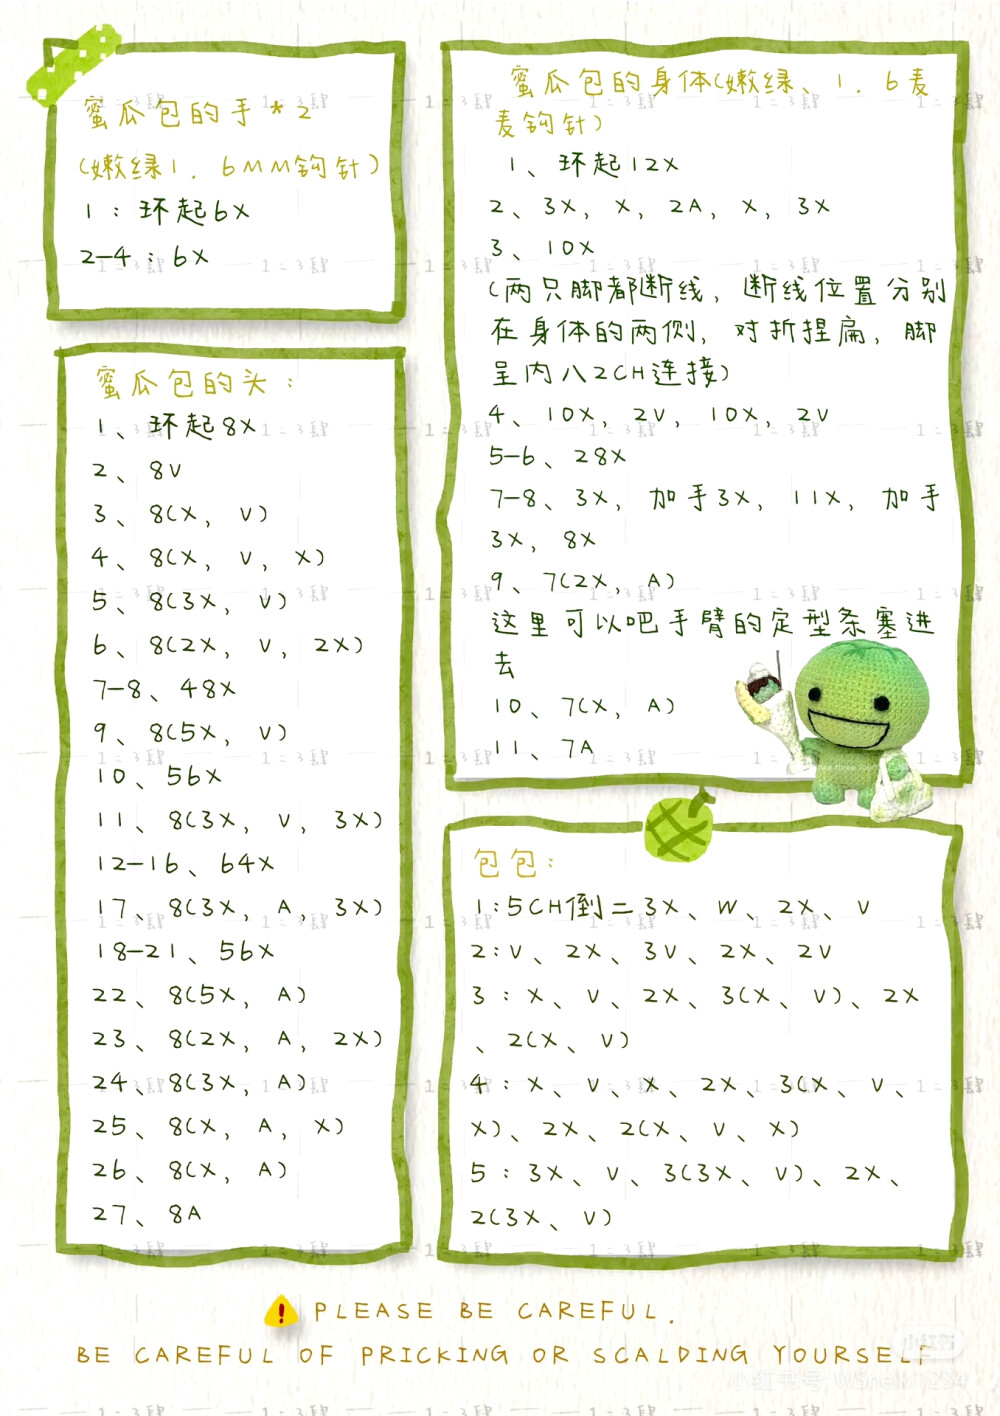 蜜瓜包的手*2
(嫩绿1.6MM钩针)
1:环起6X
2-4:6X
蜜瓜包的头:
1、环起8X
2、8V
3、8(X, V)
4、8(X, V, X)
5、8(3X, V)
6、8(2X, V, 2X)
7-8、48X
9、8(5X, V)
10、56X
11、8(3X, V, 3X)
12-16、64X
17、8(3X, A, 3X)
18-21、56X
22、8(5X, A)
23、8(2X, A, 2X)
24、8(3X, A)
25、8(X, A, X)
26、8(X, A)
27、8A
蜜瓜包的身体(嫩绿、1.6麦
麦钩针)
1、环起12X
2、3X, X, 2A, X, 3X
3、10X
(两只脚都断线, 断线位置分别
在身体的两侧, 对折捏扁, 脚
呈内八2CH连接)
4、10X, 2V, 10X, 2V
5-6、28X
7-8、3X, 加手3X, 11X, 加手
3X, 8X
9、7(2X, A)
这里可以吧手臂的定型条塞进
去
10、7(X, A)
11、7A
包包:
1:5CH倒二3X、W、2X、V
2:V、2X、3V、2X、2V
3:X、V、2X、3(X、V)、2X
、2(X、V)
4:X、V、X、2X、3(X、V、
X)、2X、2(X、V、X)
5:3X、V、3(3X、V)、2X、
2(3X、V)
PLEASE BE CAREFUL.
BE CAREFUL OF PRICKING OR SCALDING YOURSELF
小红书